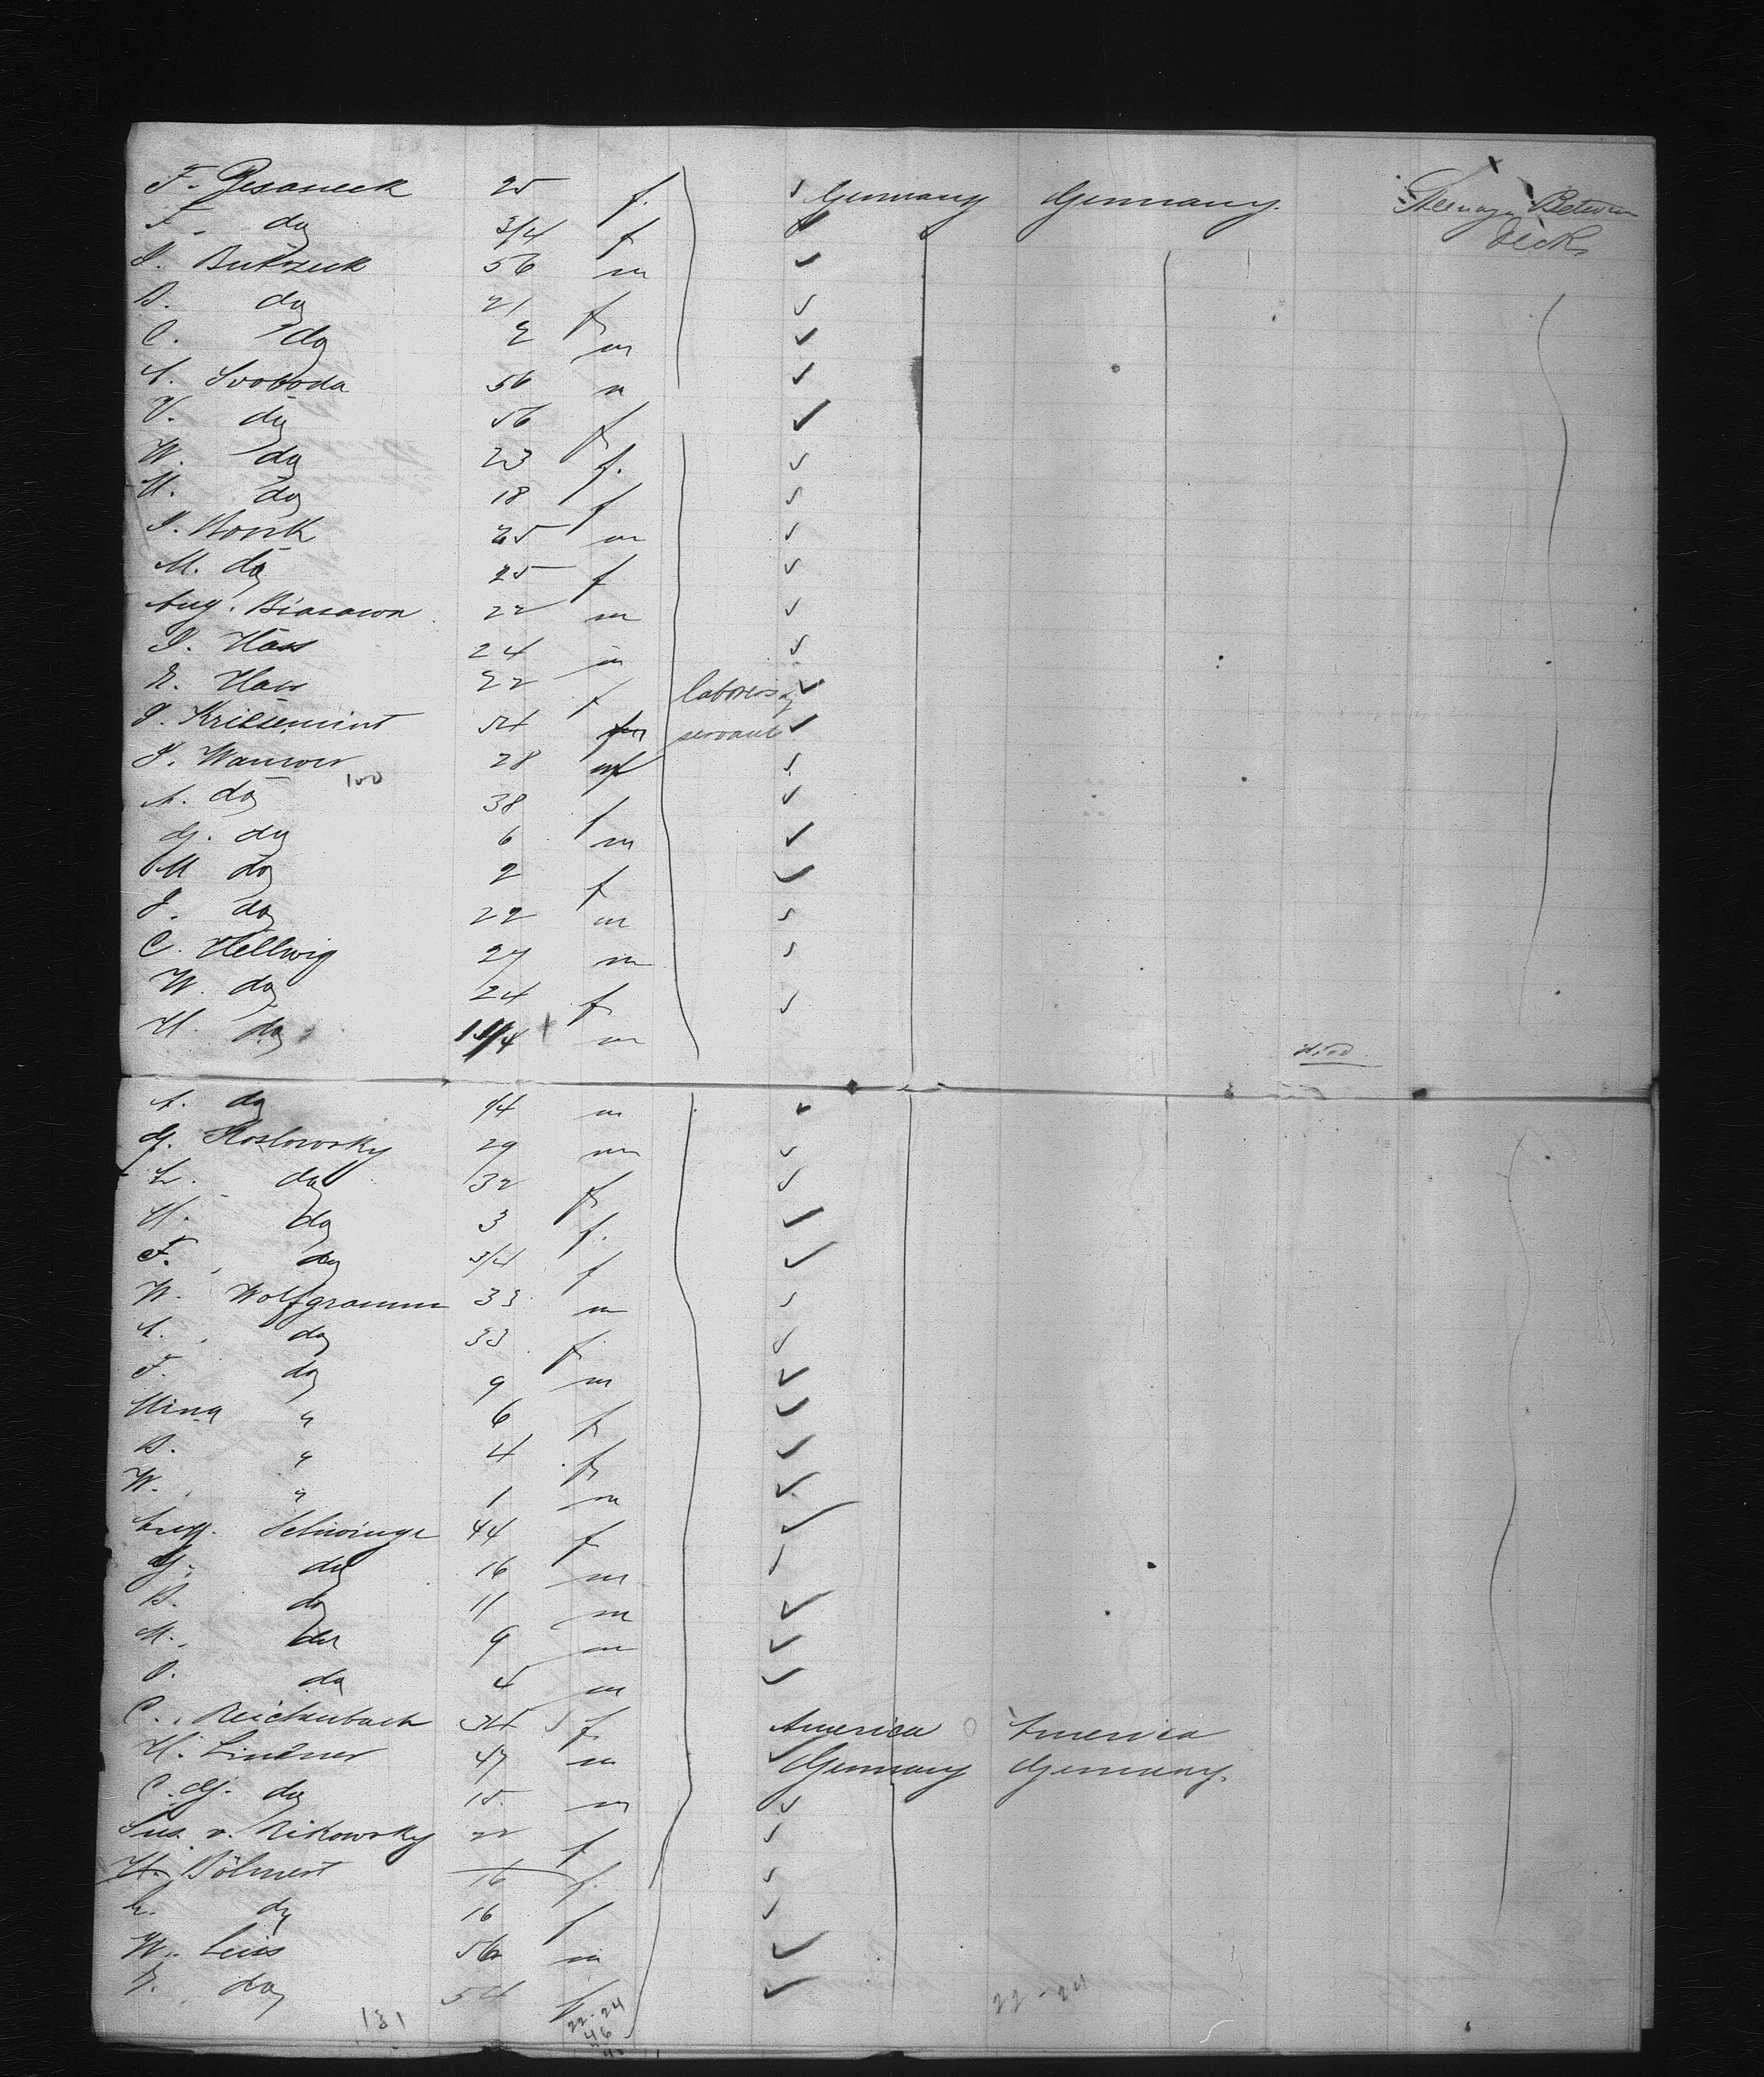 F. Jesaneck 25 f. Germany Germany. Steerage Between
F. do 3/4 f deck
J. Butzeck 56 m
B. do 21 f
C. do 2 m
A. Svoboda 56 m
V. do 56 f
W. do 23 f.
M. do 18 f
J. Borik 25 m
M. do 25 f
Aug. Biasawa 22 m
J. Hass 24 m
E. Hass 22 f laborers &
J. 54 servant
J. Wanwer 28 m
100
A. do 38 f
G. do 6 m
M do 2 f
J. do 22 m
C. Hellwig 27 m
W. do 24 f
H. do 1 1/4 m died
A. do 1/4 m
G. Koslowsky 29 m
L. do 32 f
H. do 3 f.
F. do 3/4 f
W. Wolfgramm 33 m
A. do 33 f
F. do 9 m
Mina " 6 f
B. " 4 f
W. " 1 m
Aug. Schwinge 44 f
G. do 16 m
B. do 11 m
M. do 9 m
O. do 4 m
C. Reichenbach 34 f America America
H. Lindner 47 m Germany Germany.
C. G. do 15 m
Sus. v. Rikowsky 22 f
H. Böhnert 16 f.
do 16 f
W. Leiss 56 m
E. do 54 f
131 22-24 22-24
46